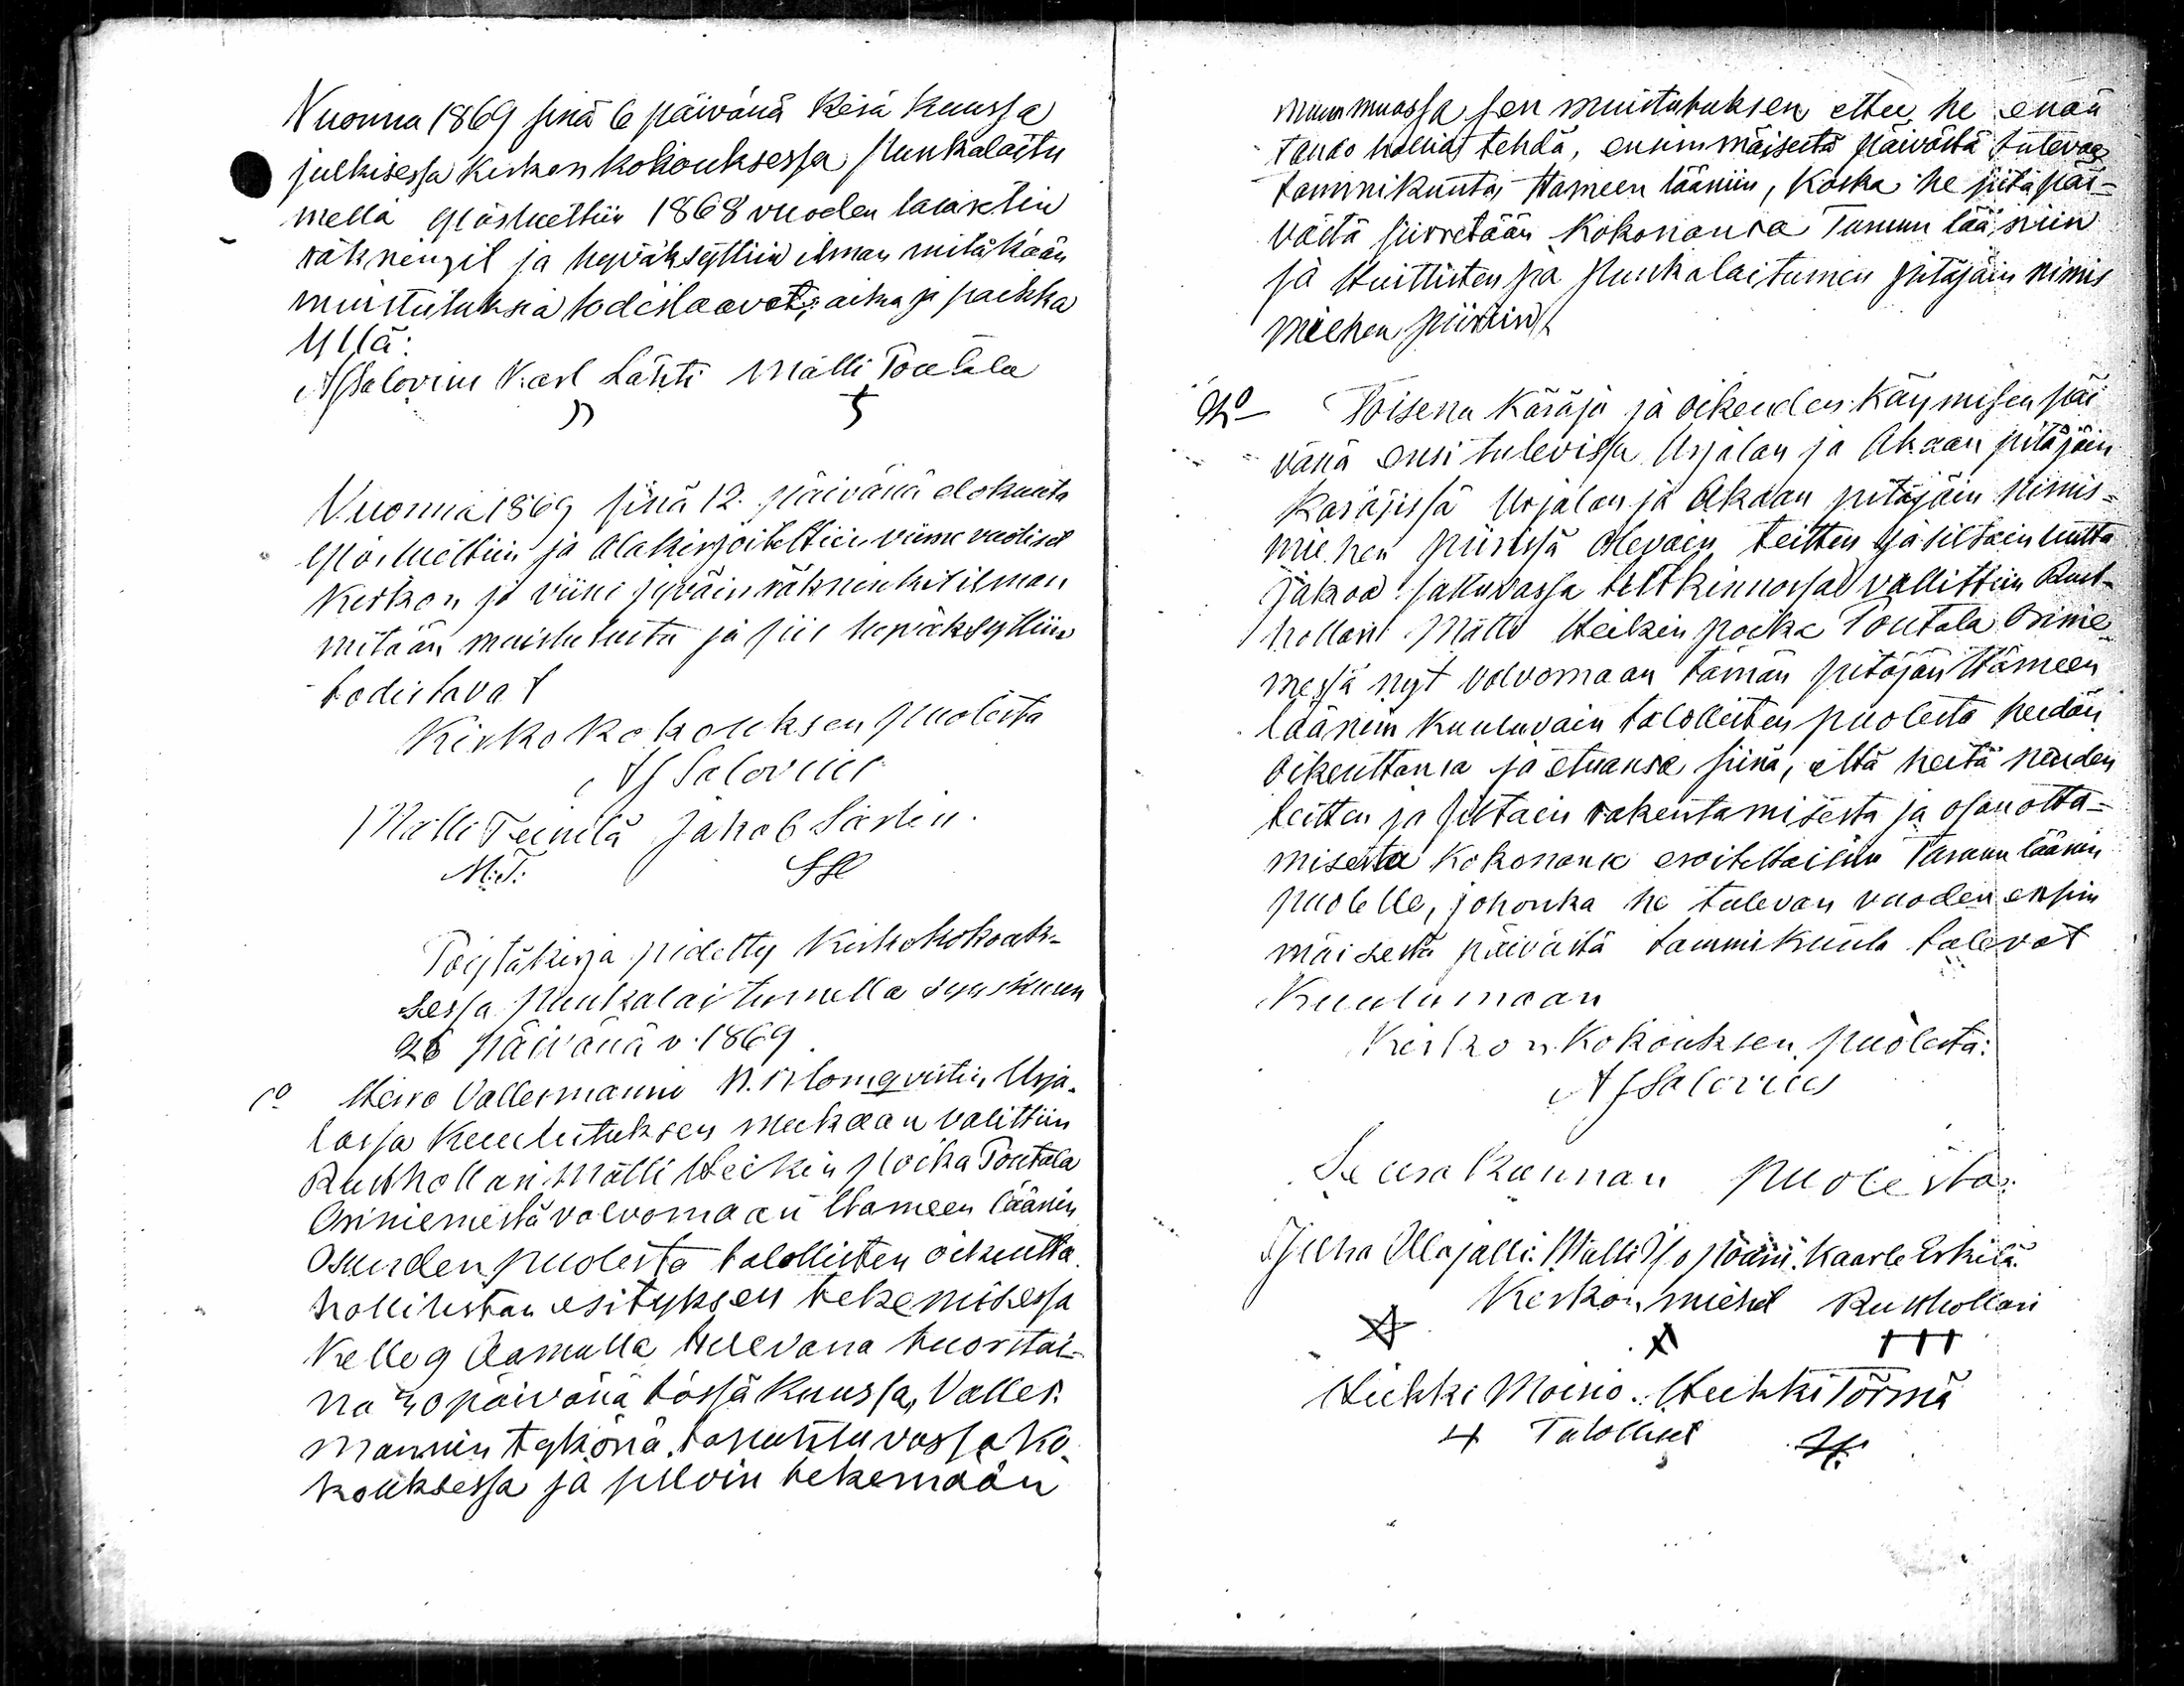 Vuonna 1869 sinä 6 päivänä Kesä Kuussa
julkisessa Kirkon kokouksessa Punkalaitu
mella ylösluettiin 1868 vuoden lasaretin
räkningit ja hyväksyttiin ilman mitäkään
muistutuksia todistaavat; aika ja paikka
Yllä:
AJSalovius Karl Lähti Matti Toutala
Vuonna 1869 sinä 12. päivänä elokuuta
Ylösluettiin ja Alakirjoitettiin viime vuotiset
Kirkon ja viini jyväin räkninkit ilman
mitään muistutusta ja siis hyväksyttiin
todistavat
Kirkokokouksen puolesta
AJ Salovius
Matti Teinilä Jakob Sardin.
M:T:
Pöytäkirja pidetty Kirkokokouk-
sessa Punkalaitumella syyskuun
26 päivänä v. 1869
1o Herra Vallesmanni N. Blomqvistin Urja-
lassa Kuulutuksen mukaan valittiin
Rusthollari Matti Heikin poika Toutala
Oriniemestä valvomaan Hämeen läänin
Osuuden puolesta talollisten oikeutta
hollilistan esityksen tekemisessä
Kello 9 Aamulla tulevana tuorstai-
na 30 päivänä tässä Kuussa, Valles-
mannin tykönä tapahtuvassa Ko-
kouksessa ja silloin tekemään
muun muassa sen muistutuksen ettei he enää
taido hollia tehdä, ensimmäisestä päivästä tulevaa
tammikuuta, Hämeen lääniin, Koska he siitä päi-
västä siirretään Kokonansa Turun lääniin
ja Huittisten ja Punkalaitumen pitäjäin nimis
miehen piiriin.
2o Toisena Käräjä ja oikeuden Käymisen päi
vänä ensi tulevissa Urjalan ja Akaan pitäjäin
Käräjissä Urjalan ja Akaan pitäjäin Nimis-
miehen piirissä Olevain teitten ja siltain uutta
jakoa sakuvassa tutkinnossa vallittiin Rust-
hollari Matti Heikin poika Toutala Orinie-
messä nyt valvomaan tämän pitäjän Hämeen
lääniin Kuuluvain talollisten puolesta heidän
Oikeuttansa ja etuansa siinä, että heitä niiden
teitten ja siltain rakentamisesta ja osanotta-
misesta Kokonans eroitettaisiin Turun läänin
puolelle, johonka he tulevan vuoden ensim
mäisestä päivästä tammikuuta tulevat
Kuulumaan
Kirkon Kokouksen puolesta:
AJSalovius
Seurakunnan puolesta:
Juha Ollajalli. Matti Yopöäni. Kaarle Erkilä.
Kirkon miehet Rusthollari
Heikki Moisio. Heikki Törmä
Talolliset